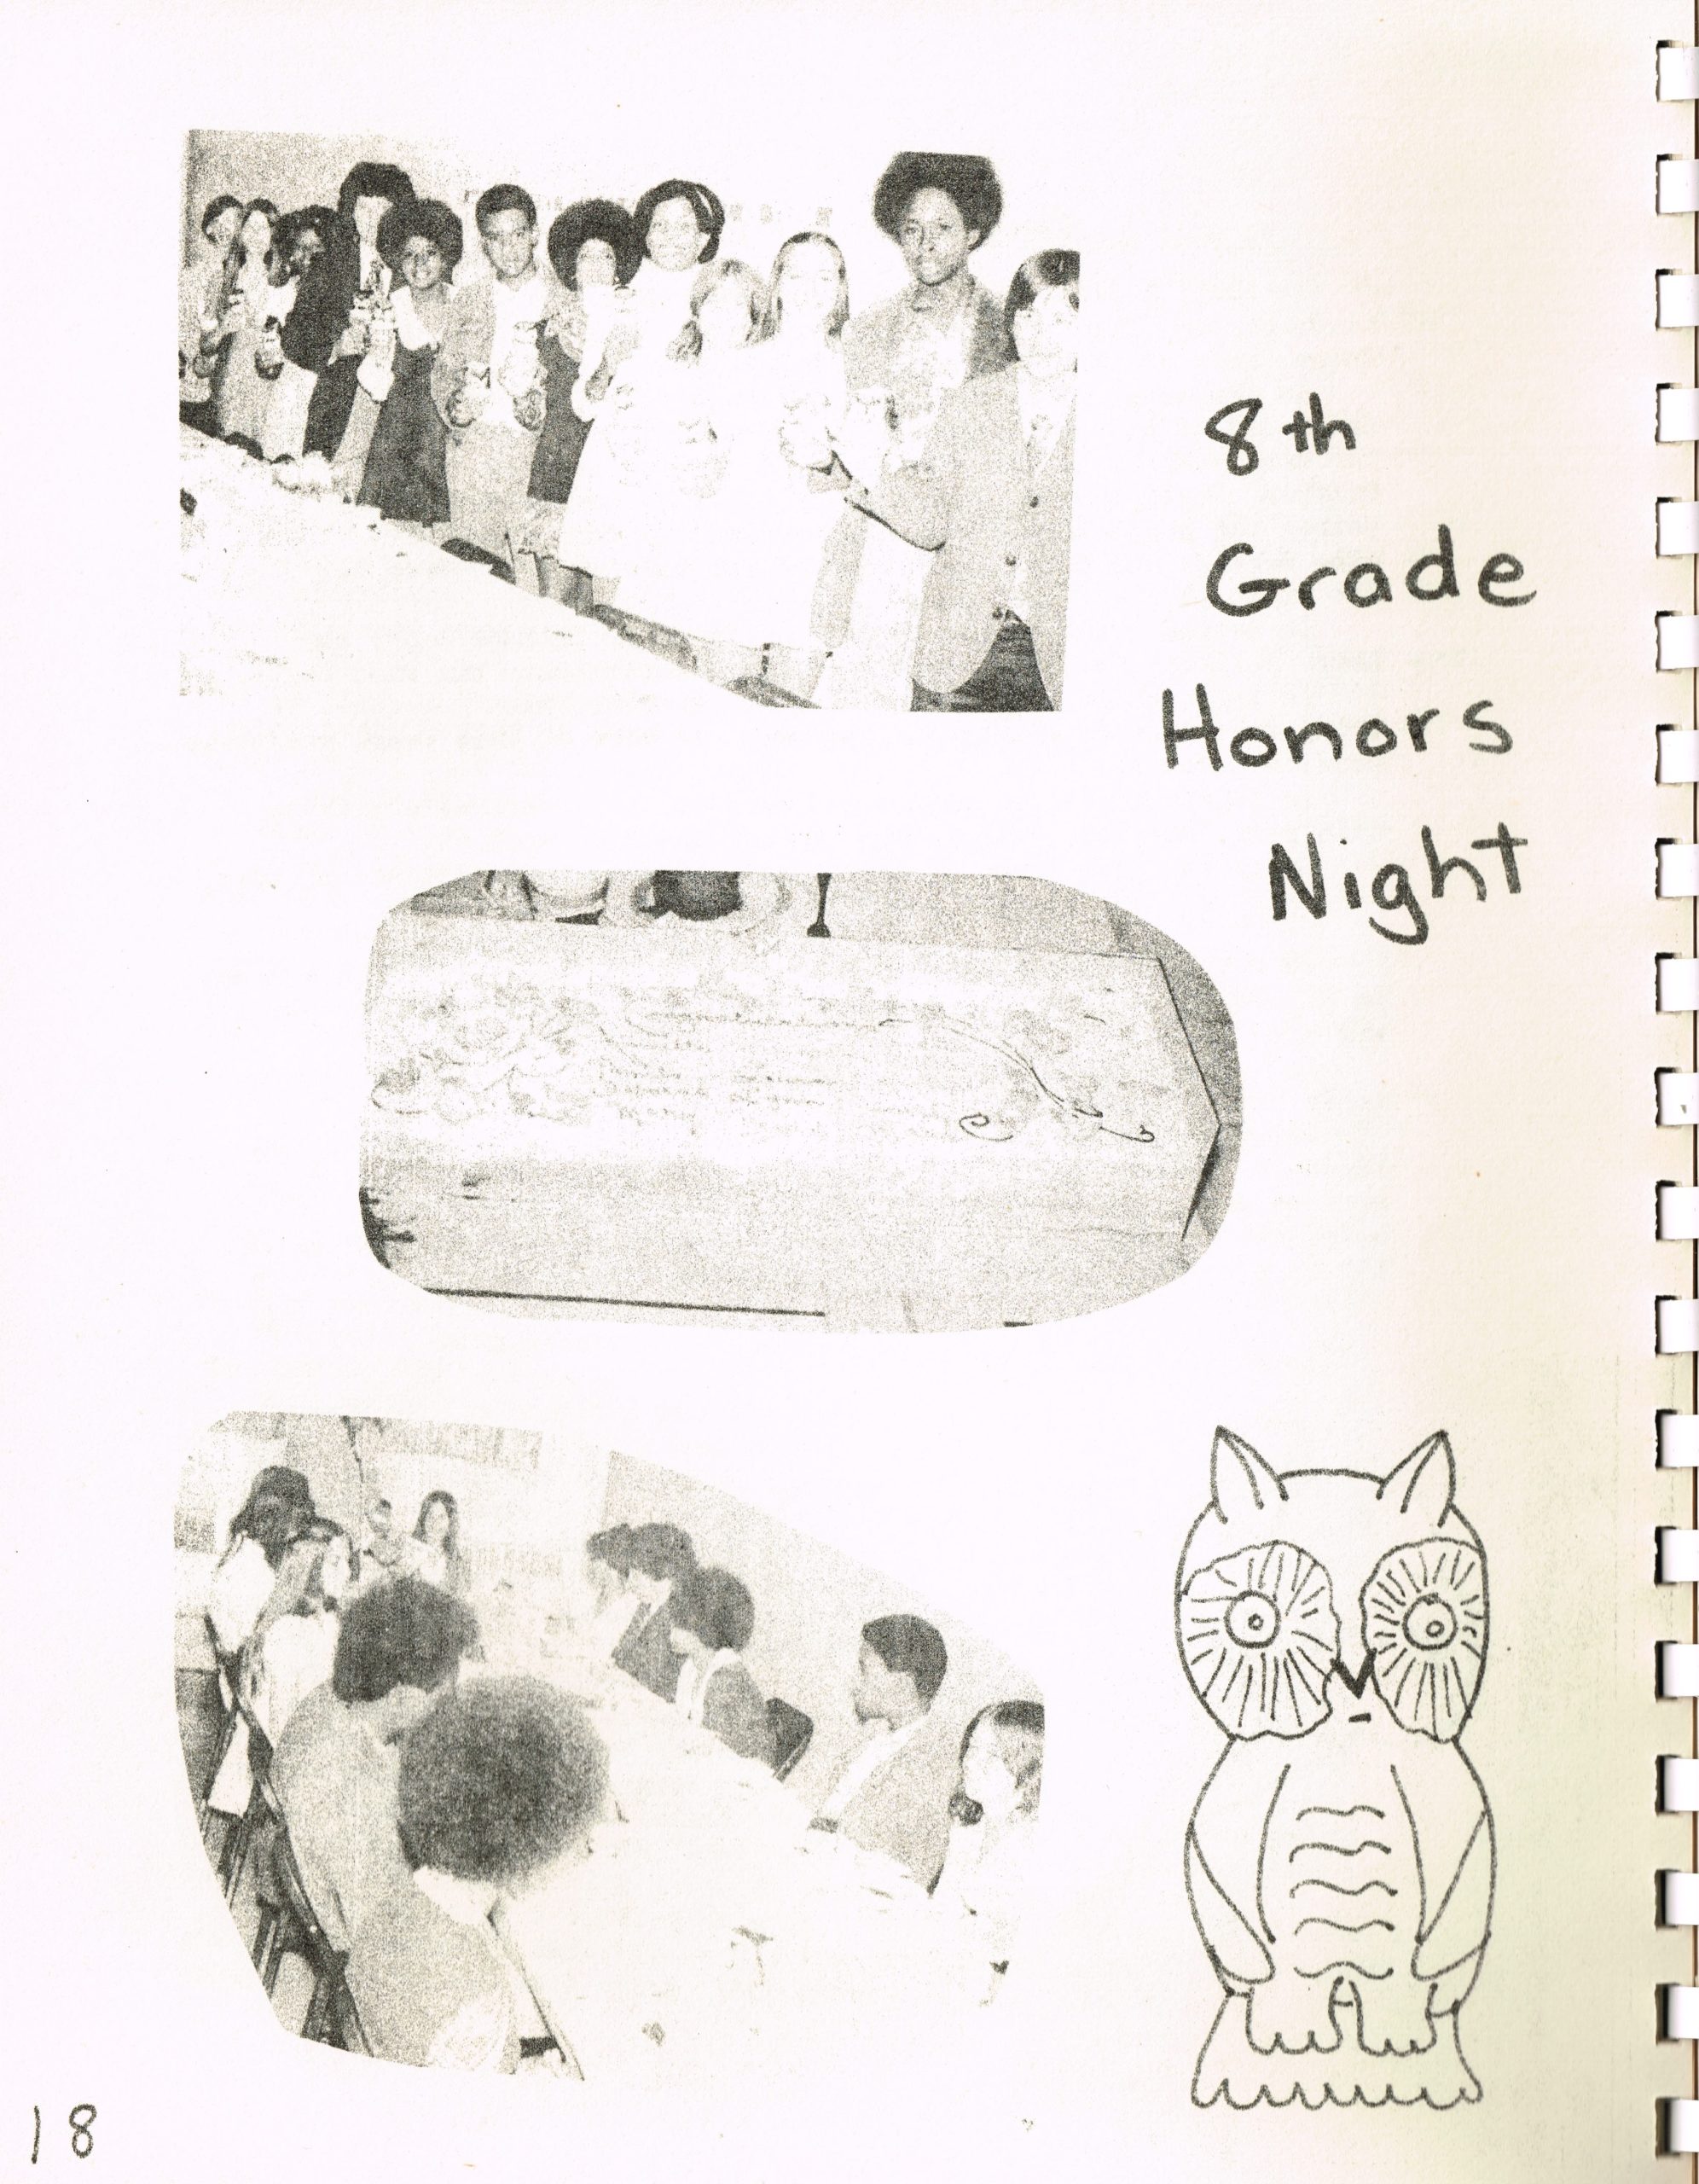 8th
Grade
Honors
Night
18